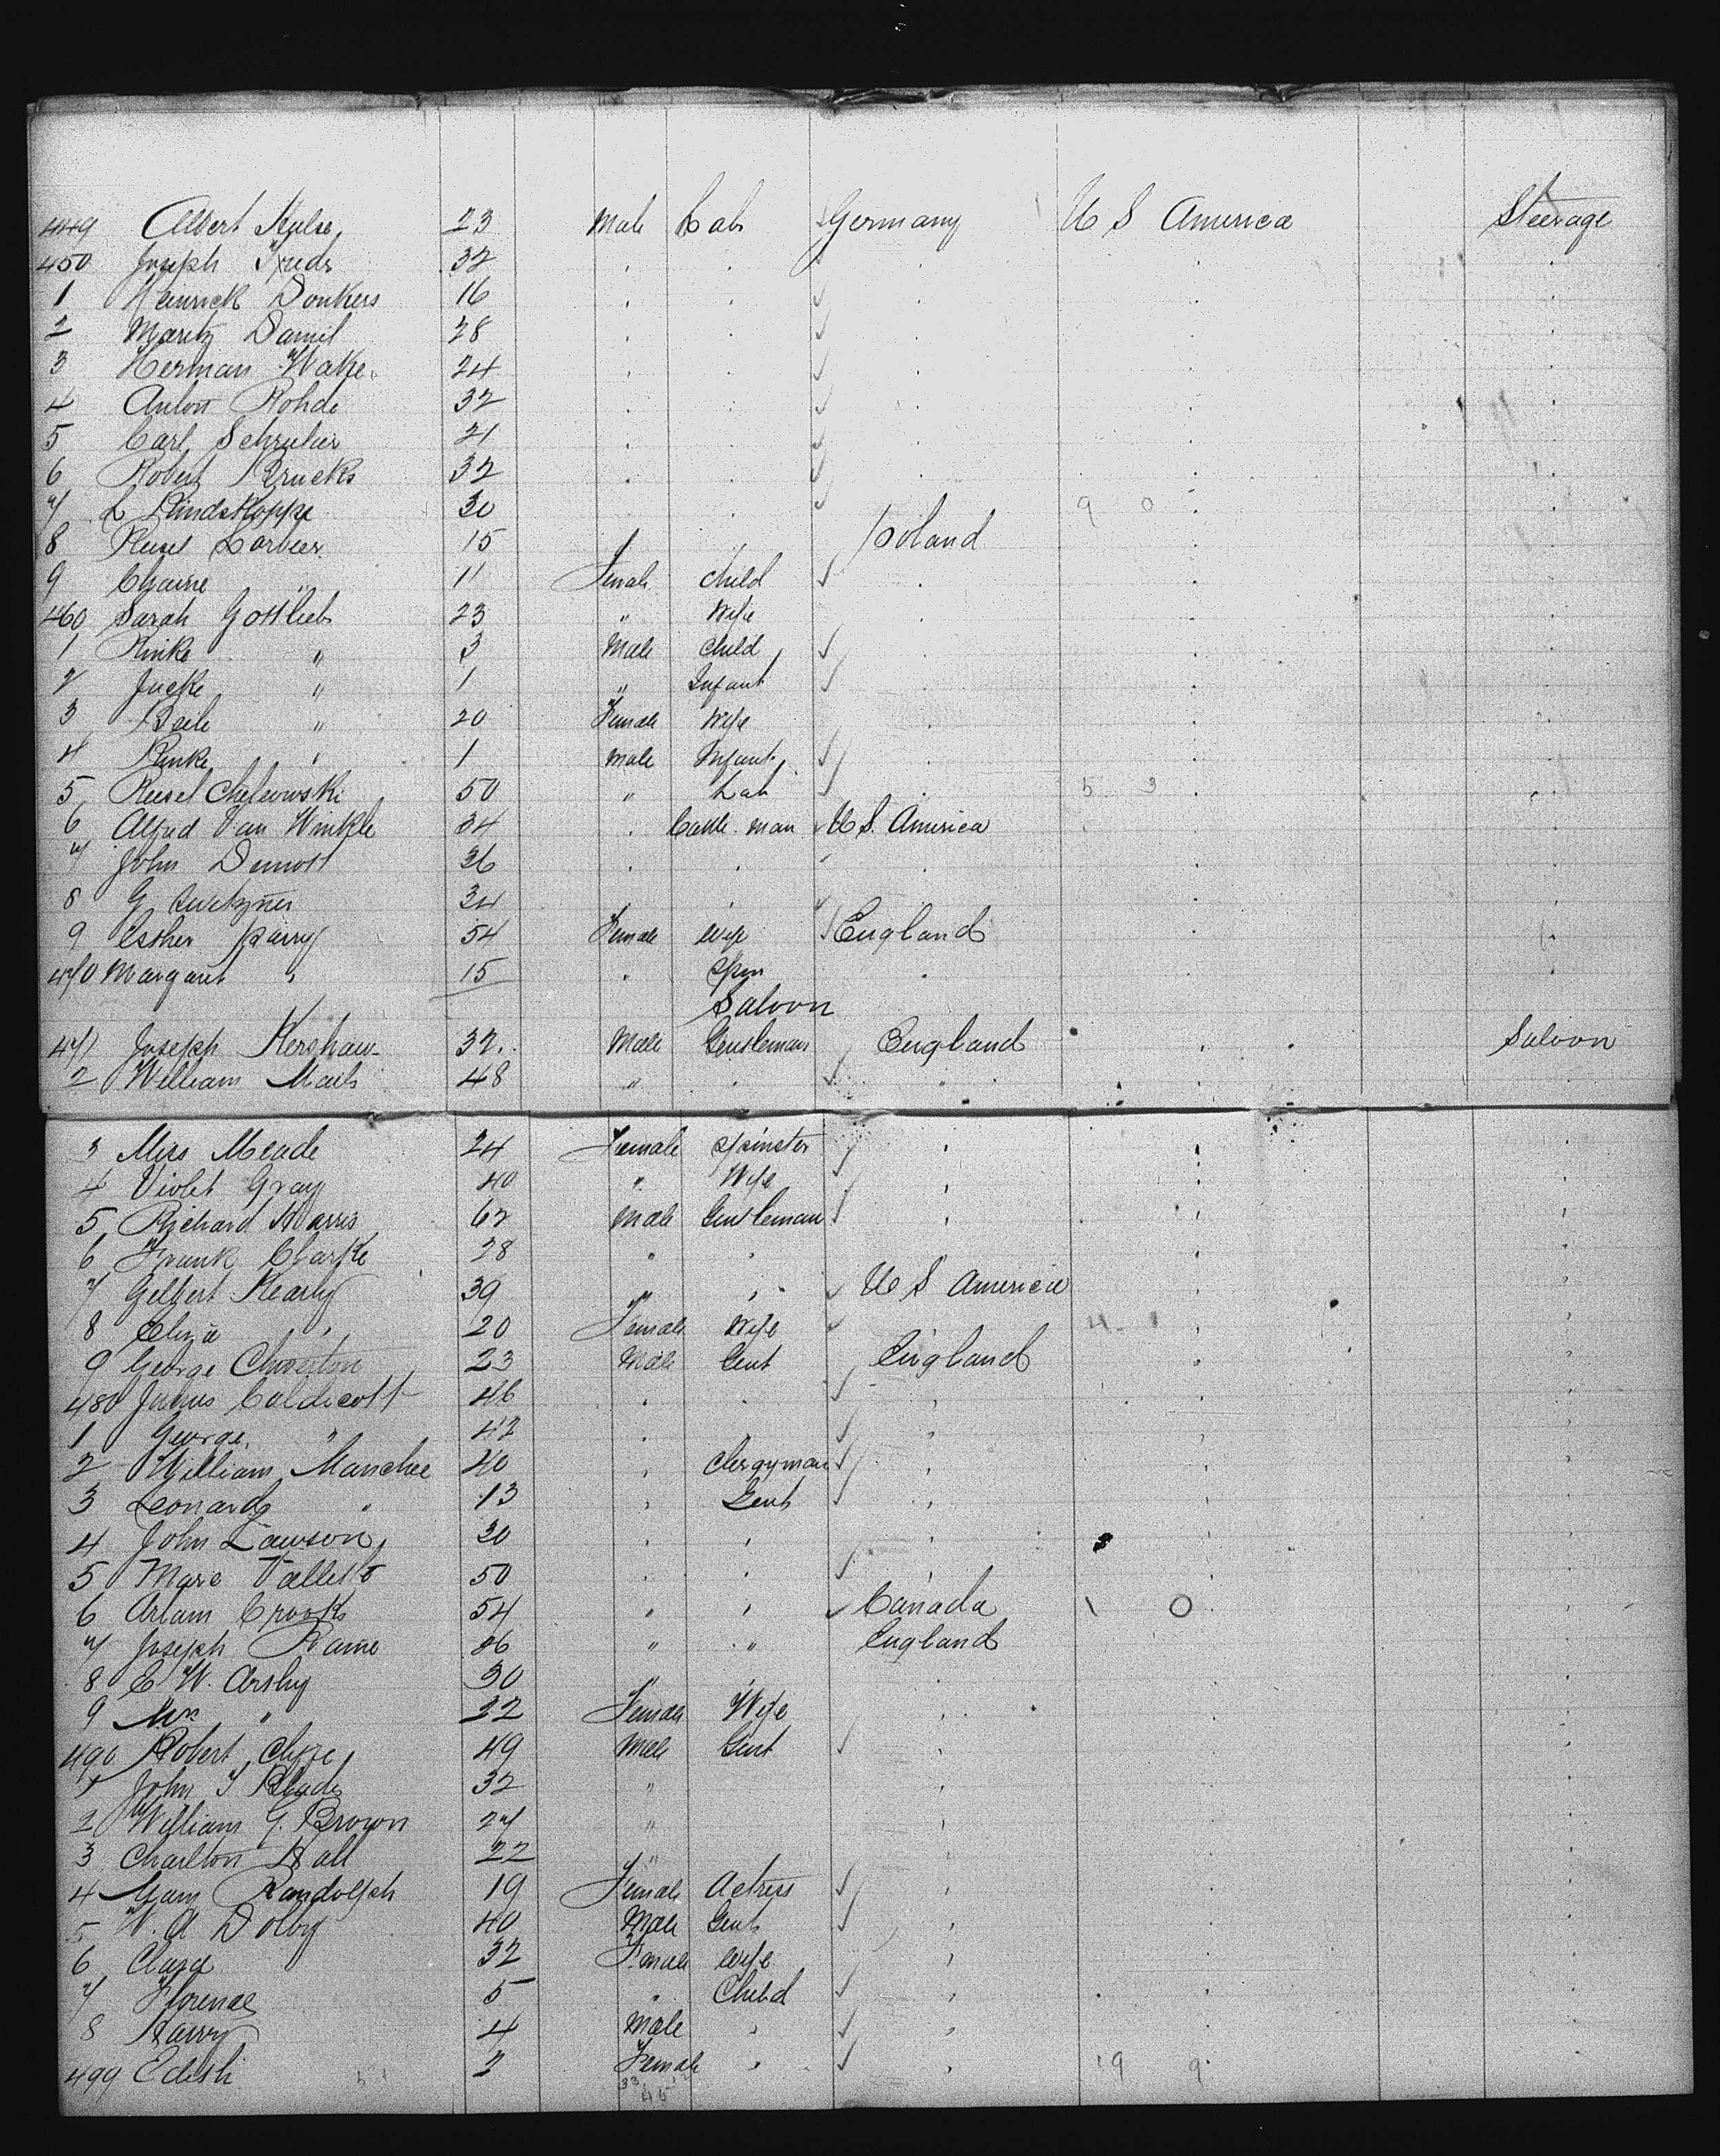 449 Albert Hulse 23 Male Lab Germany U S America Steerage
450 Joseph 32
1 Heinrich Donkers 16
2 Maritz Daniel 28
3 Herman Wake 24
4 Anton Rohde 32
5 Carl Schreiber 21
6 Robert Brucks 32
7 L Rindskoppe 30 9 0
8 Reisel Lorbeer 15 Poland
9 Chaine " 11 Female Child
460 Sarah Gottlieb 23 " Wife
1 Rinke " 3 Male Child
2 Jucke " 1 " Infant
3 Beile " 20 Female Wife
4 Rinke " 1 Male Infant
5 Reisel 50 " Lab 5 3
6 Alfred Van Winkle 34 Cattle man U S. America
7 John Demott 36
8 G 34
9 Esther Parry 54 Female Wife England
470 Margaret " 15 Spin
Saloon
471 Joseph Kershaw 32 Male Gentleman England Saloon
2 William Mails 48 "
3 Miss Meade 24 Female Spinster
4 Violet Gray 40 " Wife
5 Richard Harris 62 Male Gentleman
6 Frank Clarke 28 "
7 Gilbert Kearly 39 " U S America
8 Eliza " 20 Female Wife 4 1
9 George Chiverton 23 Male Gent England
480 Julius Caldicott 46
1 George " 42
2 William Manchee 40 Clergyman
3 Leonard " 13 Gent
4 John Lawson 30
5 Marc 50
6 Adam Crooks 54 " Canada 1 0
7 Joseph Rame 36 " " England
8 E W. Arsby 30 "
9 Mrs " 32 Female Wife
490 Robert 49 Male Gent
1 John T 32 "
2 William G. Brown 27 "
3 Charlton Hall 22 "
4 Gary Randolph 19 Female Actress
5 W. A Dolby 40 Male Gent
6 Clara 32 Female Wife
7 Florence 5 " Child
8 Harry 4 Male "
499 Edith 2 Female " 9 9
33
45